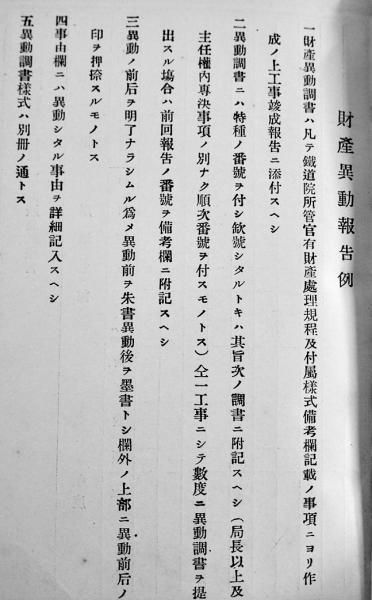 財產異動報告例
一財產異動調書ハ凡テ鐵道院所管官有財產處理規程及付屬樣式備考欄記載ノ事項ニヨリ作
成ノ上工事竣成報告ニ添付スヘシ
二異動調書ニハ特種ノ番號ヲ付シ欽號シタルトキハ其旨次ノ調書ニ附記スヘシ(局長以上及
主任權內専決事項ノ別ナク順次番號ヲ付スモノトス)仝一工事ニシテ數度ニ異動調書ヲ提
出スル塲合ハ前回報告ノ番號ヲ備考欄ニ附記スヘシ
三異動ノ前后ヲ明了ナラシムル爲メ異動前ヲ朱書異動後ヲ墨書トシ欄外ノ上部ニ異動前后ノ
印ヲ押捺スルモノトス
四事由欄ニハ異動シタル事由ヲ詳細記入スヘシ
五異動調書樣式ハ別冊ノ通トス